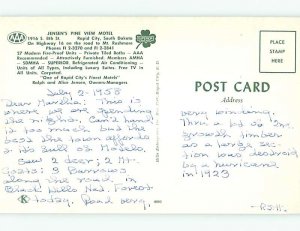 JENSEN'S PINE VIEW MOTEL
1916 S. 8th St. Rapid City, South Dakota
On Highway 16 on the road to Mt. Rushmore
Phones FI 2-2070 and FI 2-2841
27 Modern Fire-Proof Units - Private Tiled Baths - AAA
Recommended - Attractively Furnished. Members AMHA
SDMHA - SUPERIOR. Refrigerated Air Conditioning -
Units of All Types, Including Luxury Suites. Free TV In
All Units.
"One of Rapid City's Finest Motels"
Ralph and Alice Jensen, Owners-Managers
AAA
July 2 - 1958
Dear Martha: This is
where we are spending
the night. Can't hard
it too much but the
best the town affords
& its full of Motels.
Saw 2 deer; 2 Mt-
Goats; 3 Burros
along the road in
Black Hills Nat. Forest
today. Road very
PLACE
STAMP
HERE
POST CARD
Address
very winding.
Thru a lot of 2nd
growth timber
as a large sec-
tion was destroyed
by a hurricane
in 1923
- R.S.H.